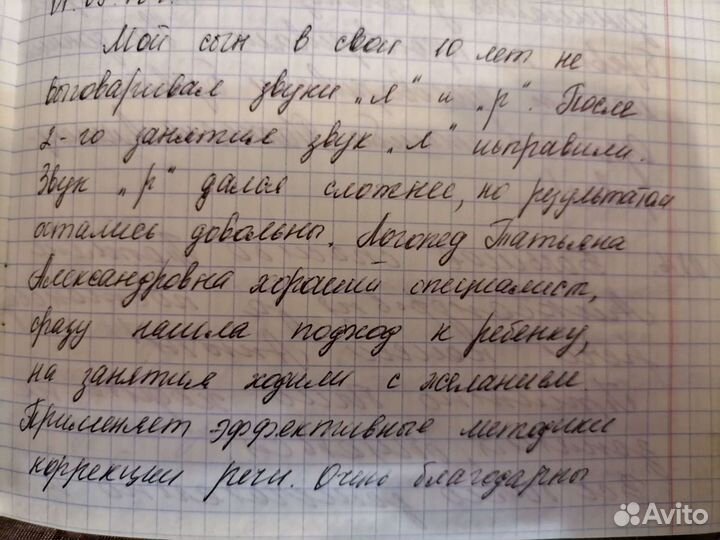 Мой сын в свои 10 лет не
выговаривал звуки „л“ и „р“. После
2-го занятия звук „л“ исправили.
Звук „р“ дался сложнее, но результатом
остались довольны. Логопед Татьяна
Александровна хороший специалист,
сразу нашла подход к ребенку,
на занятия ходили с желанием.
Применяет эффективные методики
коррекции речи. Очень благодарны
Avito